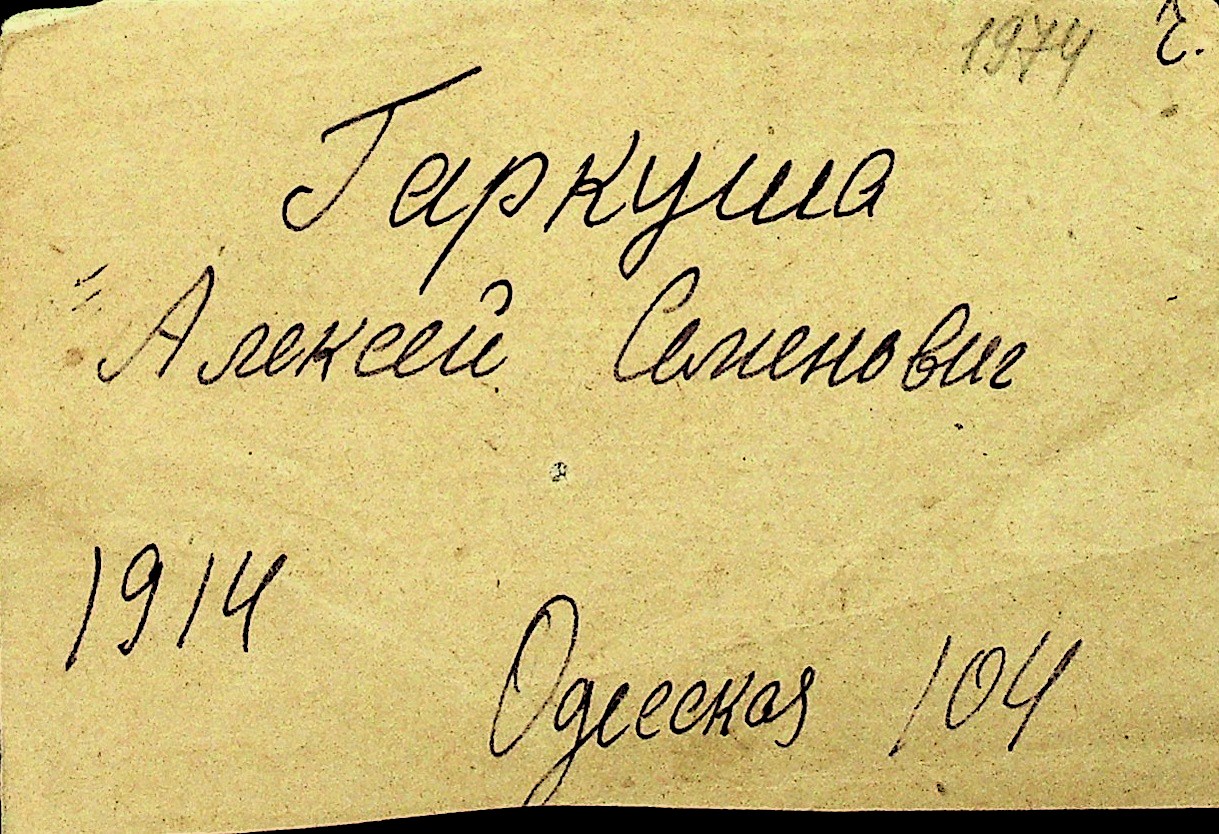 1974 г.
Гаркуша
Алексей Семенович
1914
Одесская 104